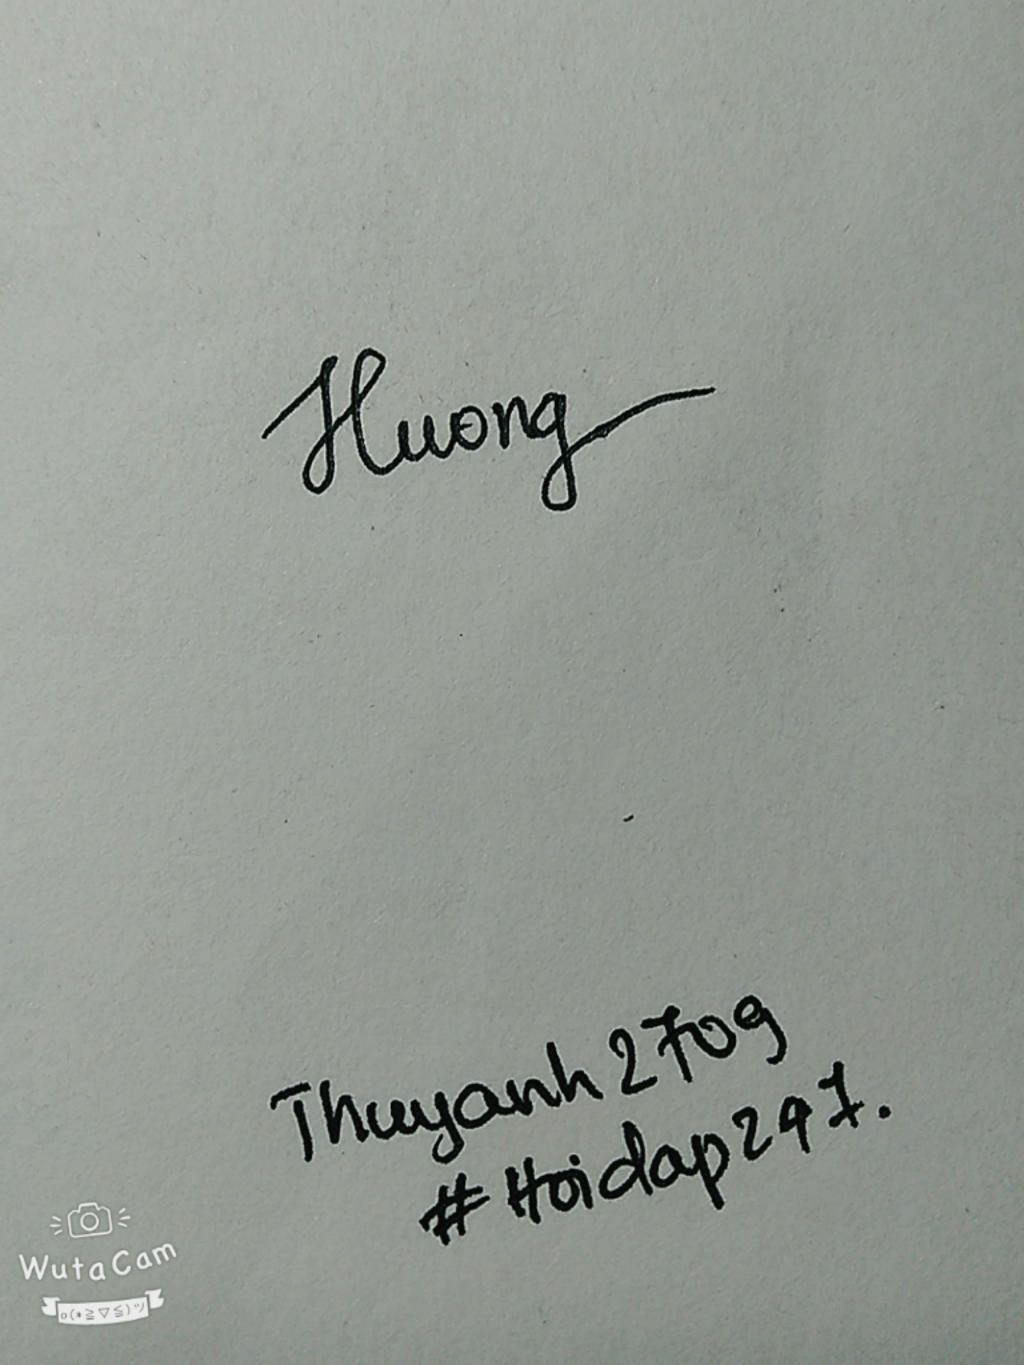 Huong
Thuyanh2709
#Hoidap247.
WutaCam
o(*≧▽≦)ツ